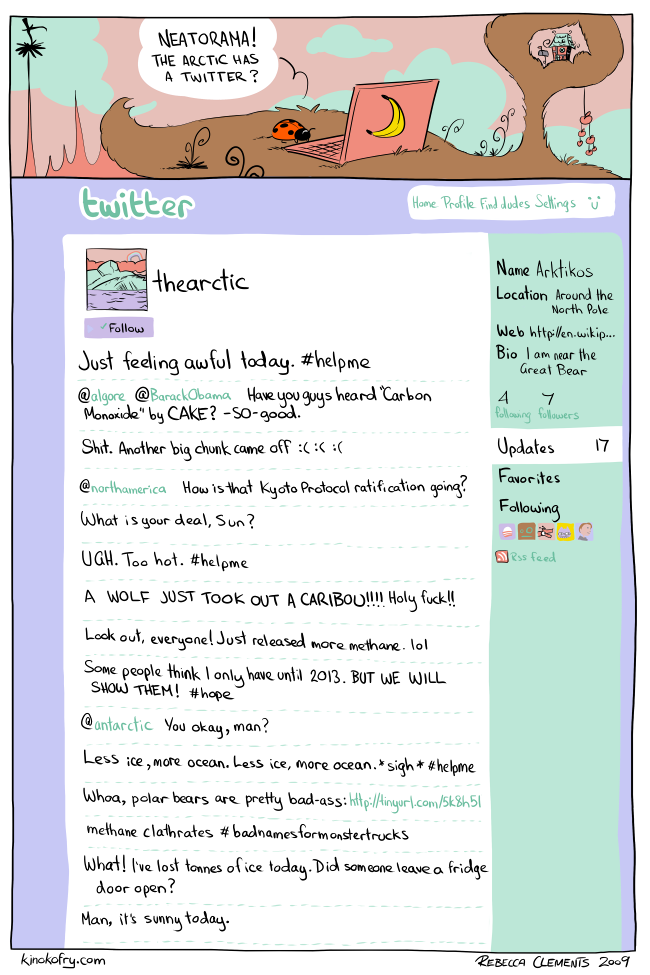 NEATORAMA!
THE ARCTIC HAS
A TWITTER?
twitter
Home Profile Find dudes Settings
thearctic
Follow
Name Arktikos
Location Around the
North Pole
Web http://en.wikip...
Bio I am near the
Great Bear
4 7
following followers
Updates 17
Favorites
Following
Rss feed
Just feeling awful today. #helpme
@algore @BarackObama Have you guys heard "Carbon
Monoxide" by CAKE? -SO-good.
Shit. Another big chunk came off :( :( :(
@northamerica How is that Kyoto Protocol ratification going?
What is your deal, Sun?
UGH. Too hot. #helpme
A WOLF JUST TOOK OUT A CARIBOU!!!! Holy fuck!!
Look out, everyone! Just released more methane. lol
Some people think I only have until 2013. BUT WE WILL
SHOW THEM! #hope
@antarctic You okay, man?
Less ice, more ocean. Less ice, more ocean. *sigh* #helpme
Whoa, polar bears are pretty bad-ass: http://tinyurl.com/5k8h5l
methane clathrates #badnamesformonstertrucks
What! I've lost tonnes of ice today. Did someone leave a fridge
door open?
Man, it's sunny today.
kinokofry.com
REBECCA CLEMENTS 2009